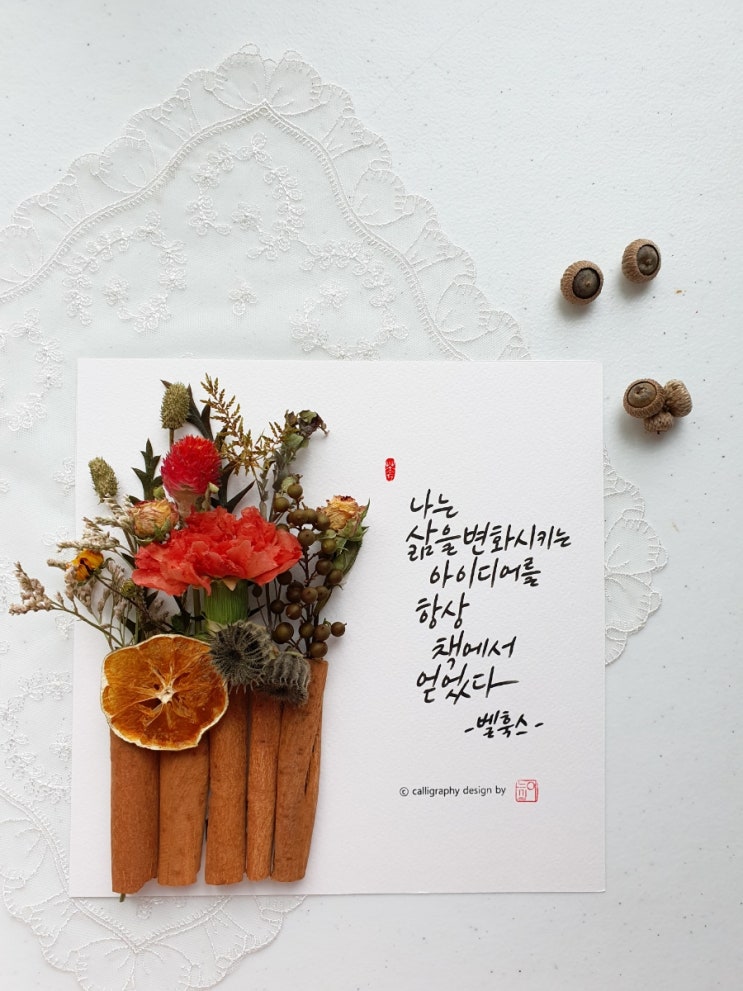 나는
삶을 변화시키는
아이디어를
항상
책에서
얻었다
-벨훅스-
© calligraphy design by